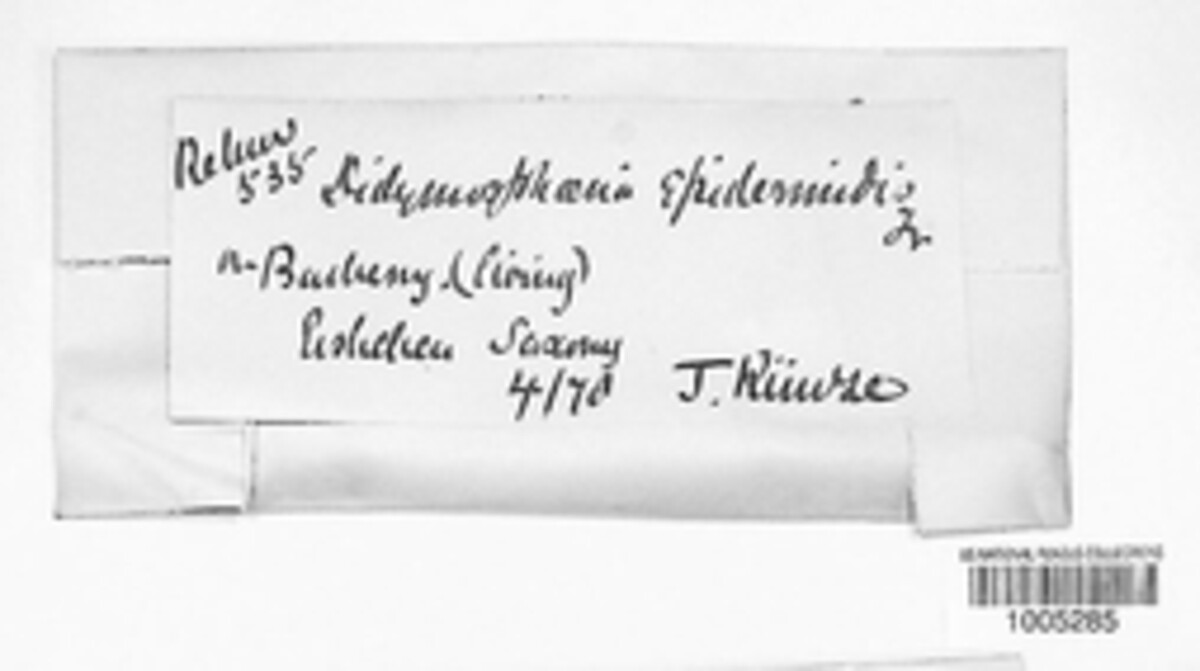 Rehm
535 Didymosphaeria epidermidis
Fr.
on Barberry (living)
Eisleben Saxony
4/78 J. Kunze
US NATIONAL FUNGUS COLLECTIONS
1005285